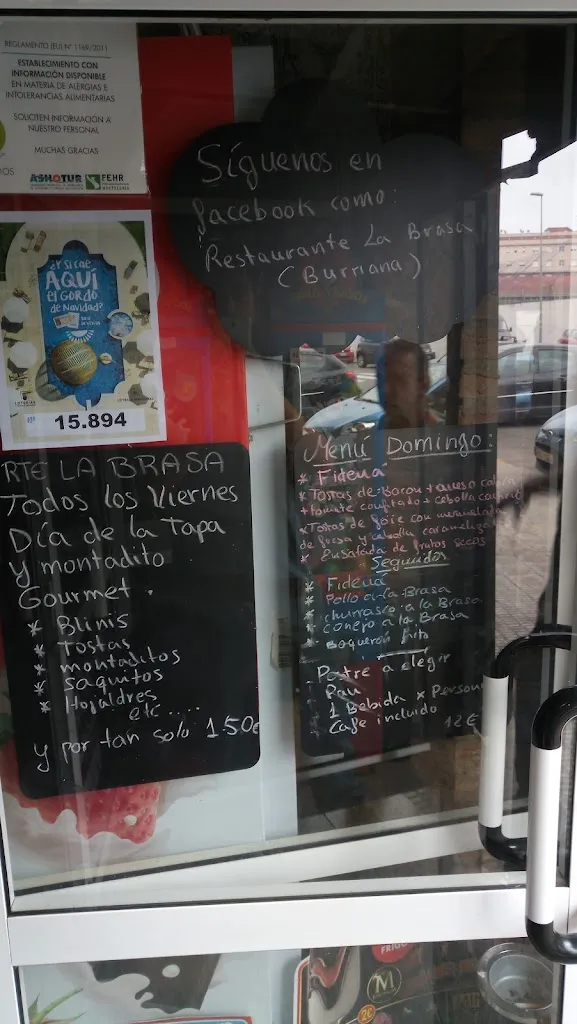 REGLAMENTO (EU) Nº 1169/2011
ESTABLECIMIENTO CON
INFORMACIÓN DISPONIBLE
EN MATERIA DE ALERGIAS E
INTOLERANCIAS ALIMENTARIAS
SOLICITEN INFORMACIÓN A
NUESTRO PERSONAL
MUCHAS GRACIAS
ASHOTUR FEHR
¿Y si cae
AQUÍ
el GORDO
de Navidad?
15.894
Síguenos en
facebook como:
Restaurante La Brasa
(Burriana)
RTE LA BRASA
Todos los Viernes
Día de la Tapa
y montadito
Gourmet.
* Blinis
* Tostas
* montaditos
* Saquitos
* Hojaldres
etc ....
y por tan solo 1.50€
Menú Domingo:
* Fideua
* Tostas de Bacon + queso cabra
+ tomate confitado + cebolla
* Tostas de foie con mermelada
de fresa y cebolla
* Ensalada de frutos secos
Segundos
* Fideuá
* Pollo a la Brasa
* churrasco a la Brasa
* conejo a la Brasa
* Boqueron frito
Postre a elegir
Pan
1 Bebida x Person
Cafe incluido
12€
FRIGO
M